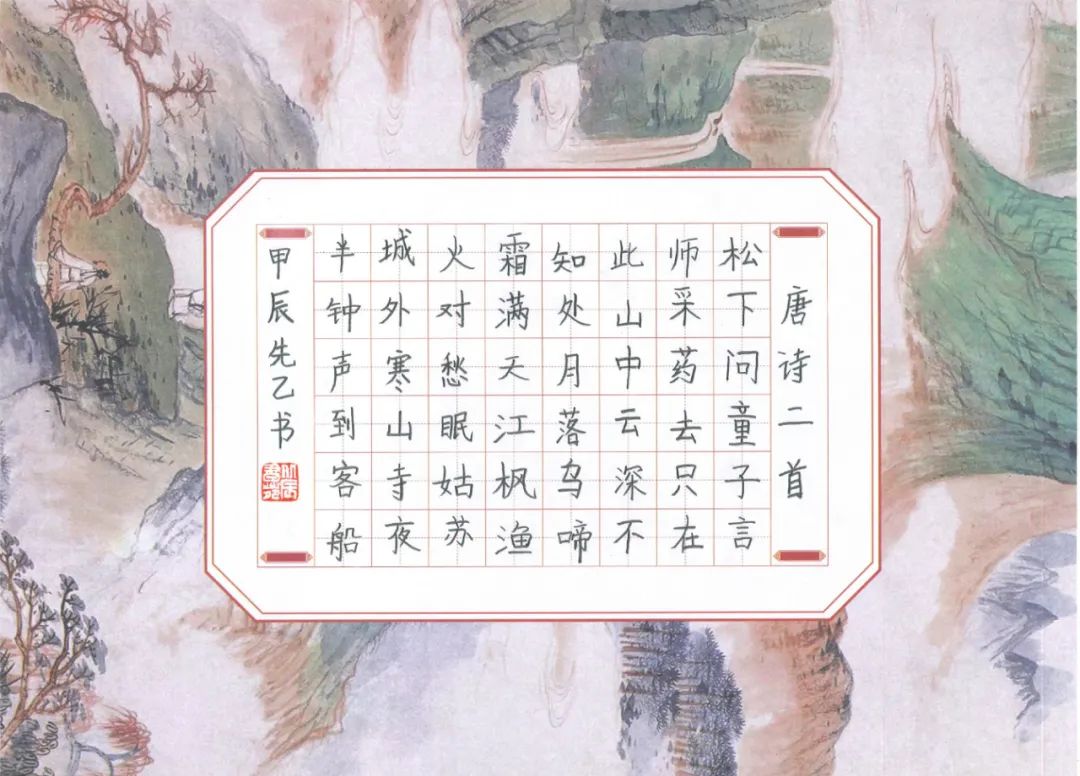 唐诗二首
松下问童子言
师采药去只在
此山中云深不
知处月落乌啼
霜满天江枫渔
火对愁眠姑苏
城外寒山寺夜
半钟声到客船
甲辰先乙书